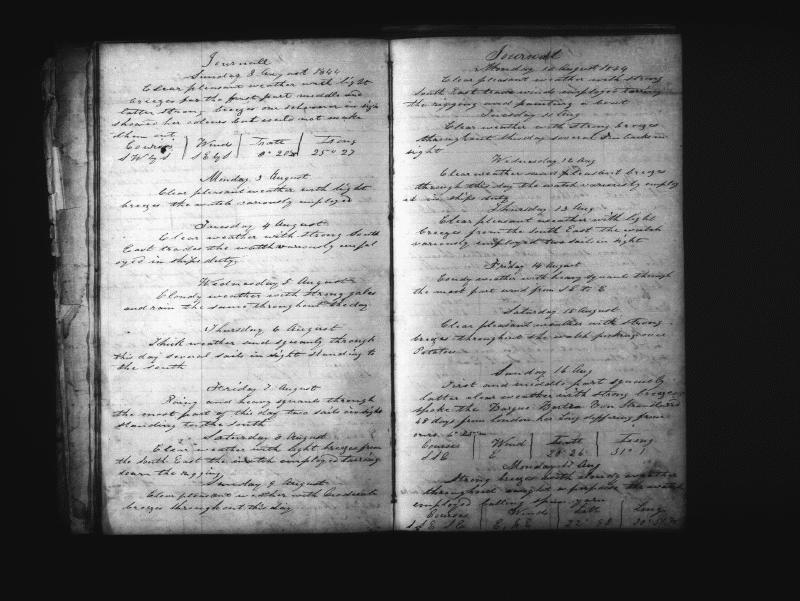 Journall
Sunday 2 August 1844
Clear pleasant weather with light
breezes for the first part middle and
latter strong breezes one schooner in sight
showed her colours but could not make
them out
Courses Wind Latt Long
SW by S SE by S 8° 20 25° 27
Monday 3 August
Clear pleasant weather with light
breezes the watch variously employed
Tuesday 4 August
Clear weather with strong South
East trades the watch variously empl
oyed in ships duty
Wednesday 5 August
Cloudy weather with strong gales
and rain the same throughout the day
Thursday 6 August
Thick weather and squaly through
this day several sails in sight standing to
the south
Friday 7 August
Rainy and heavy squauls through
the most part of this day two sail in sight
standing to the south
Saturday 8 August
Clear weather with light breezes from
the South East the watch employed tarring
down the rigging
Sunday 9 August
Clear pleasant weather with moderate
breezes throughout this day
Journal
Monday 10 August 1844
Clear pleasant weather with strong
South East trade winds employed tarring
the rigging and painting a boat
Tuesday 11 Aug
Clear weather with strong breezes
throughout this day several in
sight
Wednesday 12 Aug
Clear weather and pleasant breezes
through this day the watch variously employ
ed in ships duty
Thursday 13 Aug
Clear pleasant weather with light
breezes from the South East the watch
variously employed two sail in sight
Friday 14 August
Cloudy weather with heavy squauls through
the most part wind from SE to E
Saturday 15 August
Clear pleasant weather with strong
breezes throughout the watch picking over
Potatoes
Sunday 16 Aug
First and middle part squauly
latter clear weather with strong breezes
spoke the Barque
48 days from London her Long differing from
ours
Courses Wind Latt Long
SSE E 20° 26 31° 1
Monday 17 Aug
Strong breezes with cloudy weather
throughout the watch
employed
Courses Winds Latt Long
E by E 22° 58